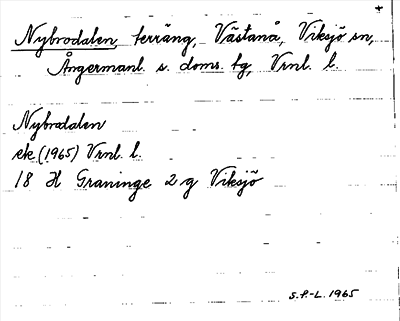 +
Nybrodalen, terräng, Västanå, Viksjö sn,
Ångermanl. s. doms. tg, Vrnl. l.
Nybrodalen
ek. (1965) Vrnl. l.
18 H Graninge 2 g Viksjö
S.P.-L. 1965